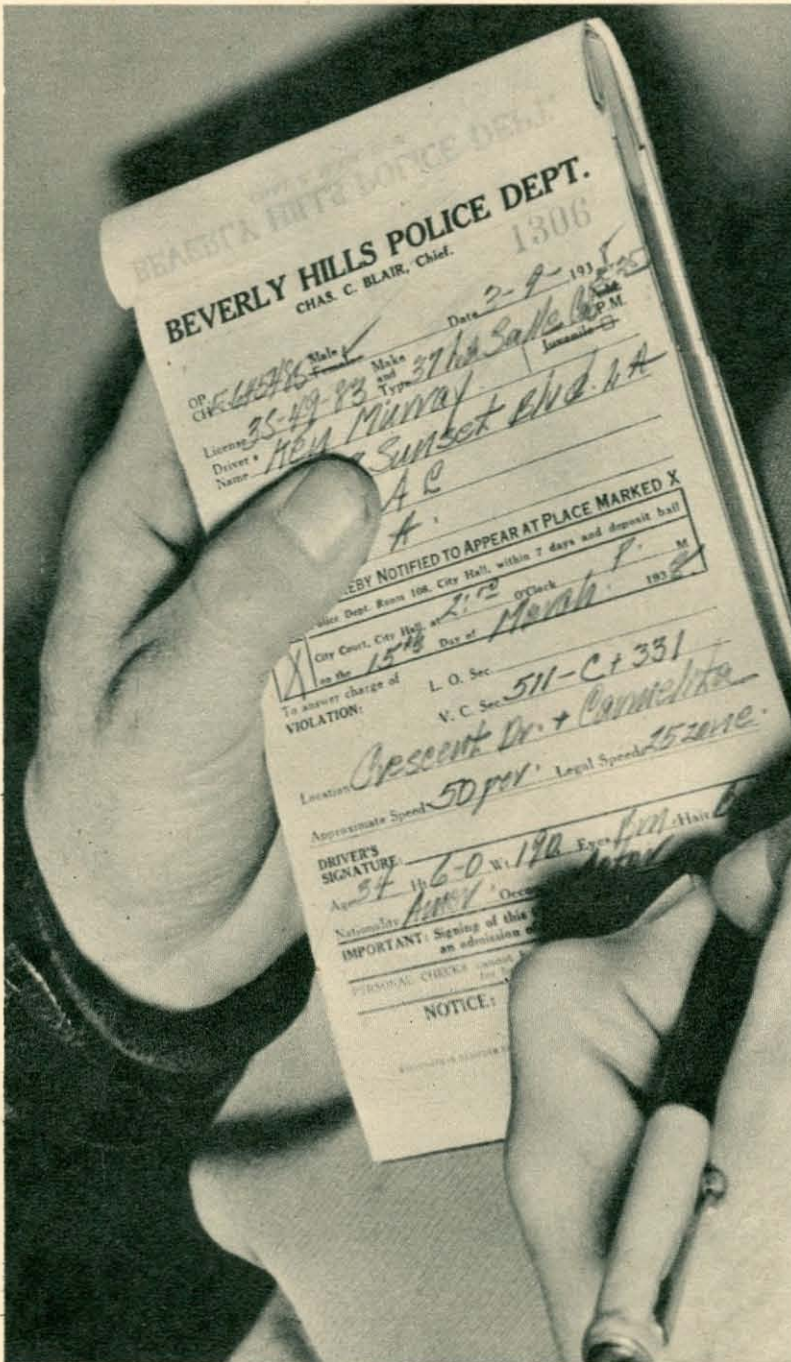 BEVERLY HILLS POLICE DEPT.
CHAS. C. BLAIR, Chief.
1306
Date 3-9- 1938
P.M.
OP.
CH. Male Female Make and Type 37 La Salle Juvenile
License 3S-49-83
Driver's Name Ken Murray
Sunset Blvd. LA
NOTIFIED TO APPEAR AT PLACE MARKED X
Dept. Room 108, City Hall, within 7 days and deposit bail
X City Court, City Hall, at 2:00 O'Clock P. M
on the 15th Day of March 1938
To answer charge of VIOLATION:
L. O. Sec.
V. C. Sec. 511-C + 331
Location Crescent Dr. + Carmelita
Approximate Speed 50 per. Legal Speed 25 zone.
DRIVER'S SIGNATURE:
Age 34 Ht. 6-0 Wt. 190 Eyes Brn Hair
Nationality Amer.
IMPORTANT: Signing of this
an admission of
PERSONAL CHECKS cannot
NOTICE: